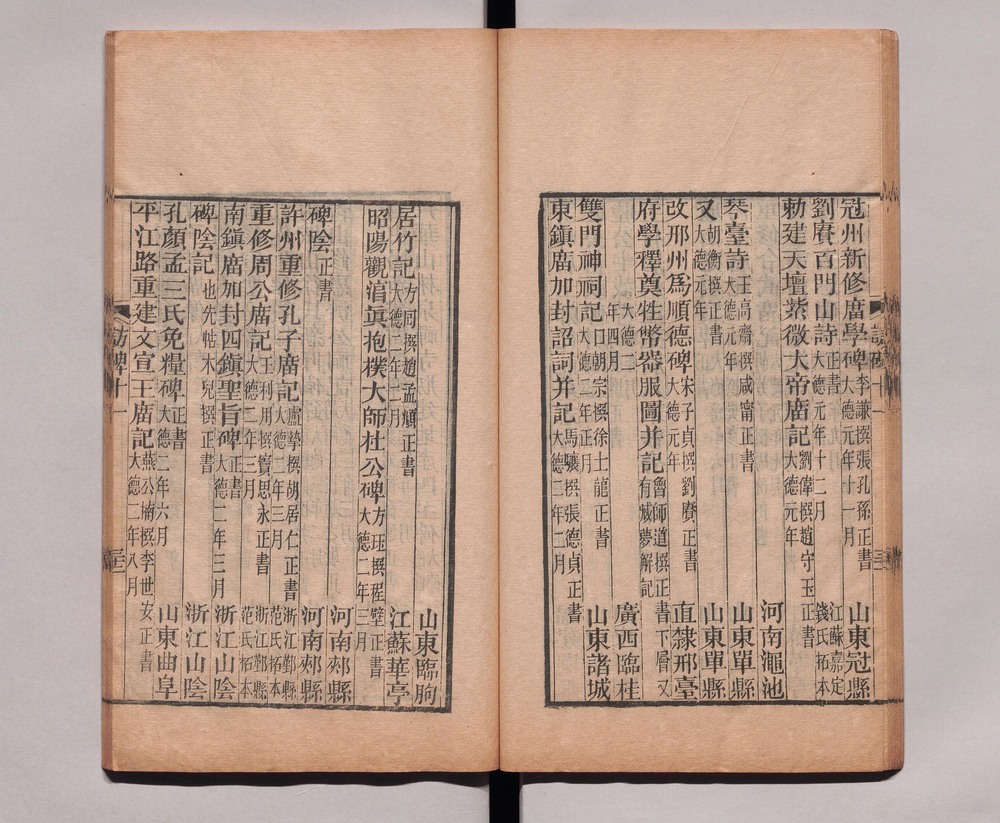 冠州新修庿學碑 李謙撰張孔孫正書 大德元年十一月 山東冠縣
劉賡百門山詩 正書 大德元年十二月 江蘇嘉定錢氏拓本
勅建天壇紫微大帝庿記 劉偉撰趙守玉正書 大德元年
河南澠池
琴臺詩 王高齋撰咸甯正書 大德元年 山東單縣
又 胡衡撰正書 大德元年 山東單縣
改邢州爲順德碑 宋子貞撰劉賡正書 大德元年 直隸邢臺
府學釋奠牲幣器服圖并記 曾師道撰正書下層又有減夢解記
大德二年四月 廣西臨桂
雙門神祠記 口朝宗撰徐士龍正書 大德二年正月 山東諸城
東鎮庿加封詔詞并記 馬驤撰張德貞正書 大德二年二月
山東臨朐
居竹記 方回撰趙孟頫正書 大德二年二月 江蘇華亭
昭陽觀湻眞抱樸大師杜公碑 方珏撰程壁正書 大德二年三月
河南郟縣
碑陰 正書 河南郟縣
許州重修孔子庿記 盧摯撰胡居仁正書 大德二年三月 浙江鄞縣范氏拓本
重修周公庿記 王利用撰竇思永正書 大德二年三月 浙江鄞縣范氏拓本
南鎮庿加封四鎮聖旨碑 正書 大德二年三月 浙江山陰
碑陰記 也先帖木兒撰正書 浙江山陰
孔顏孟三氏免糧碑 正書 大德二年六月 山東曲阜
平江路重建文宣王庿記 燕公楠撰李世安正書 大德二年八月
訪碑十一